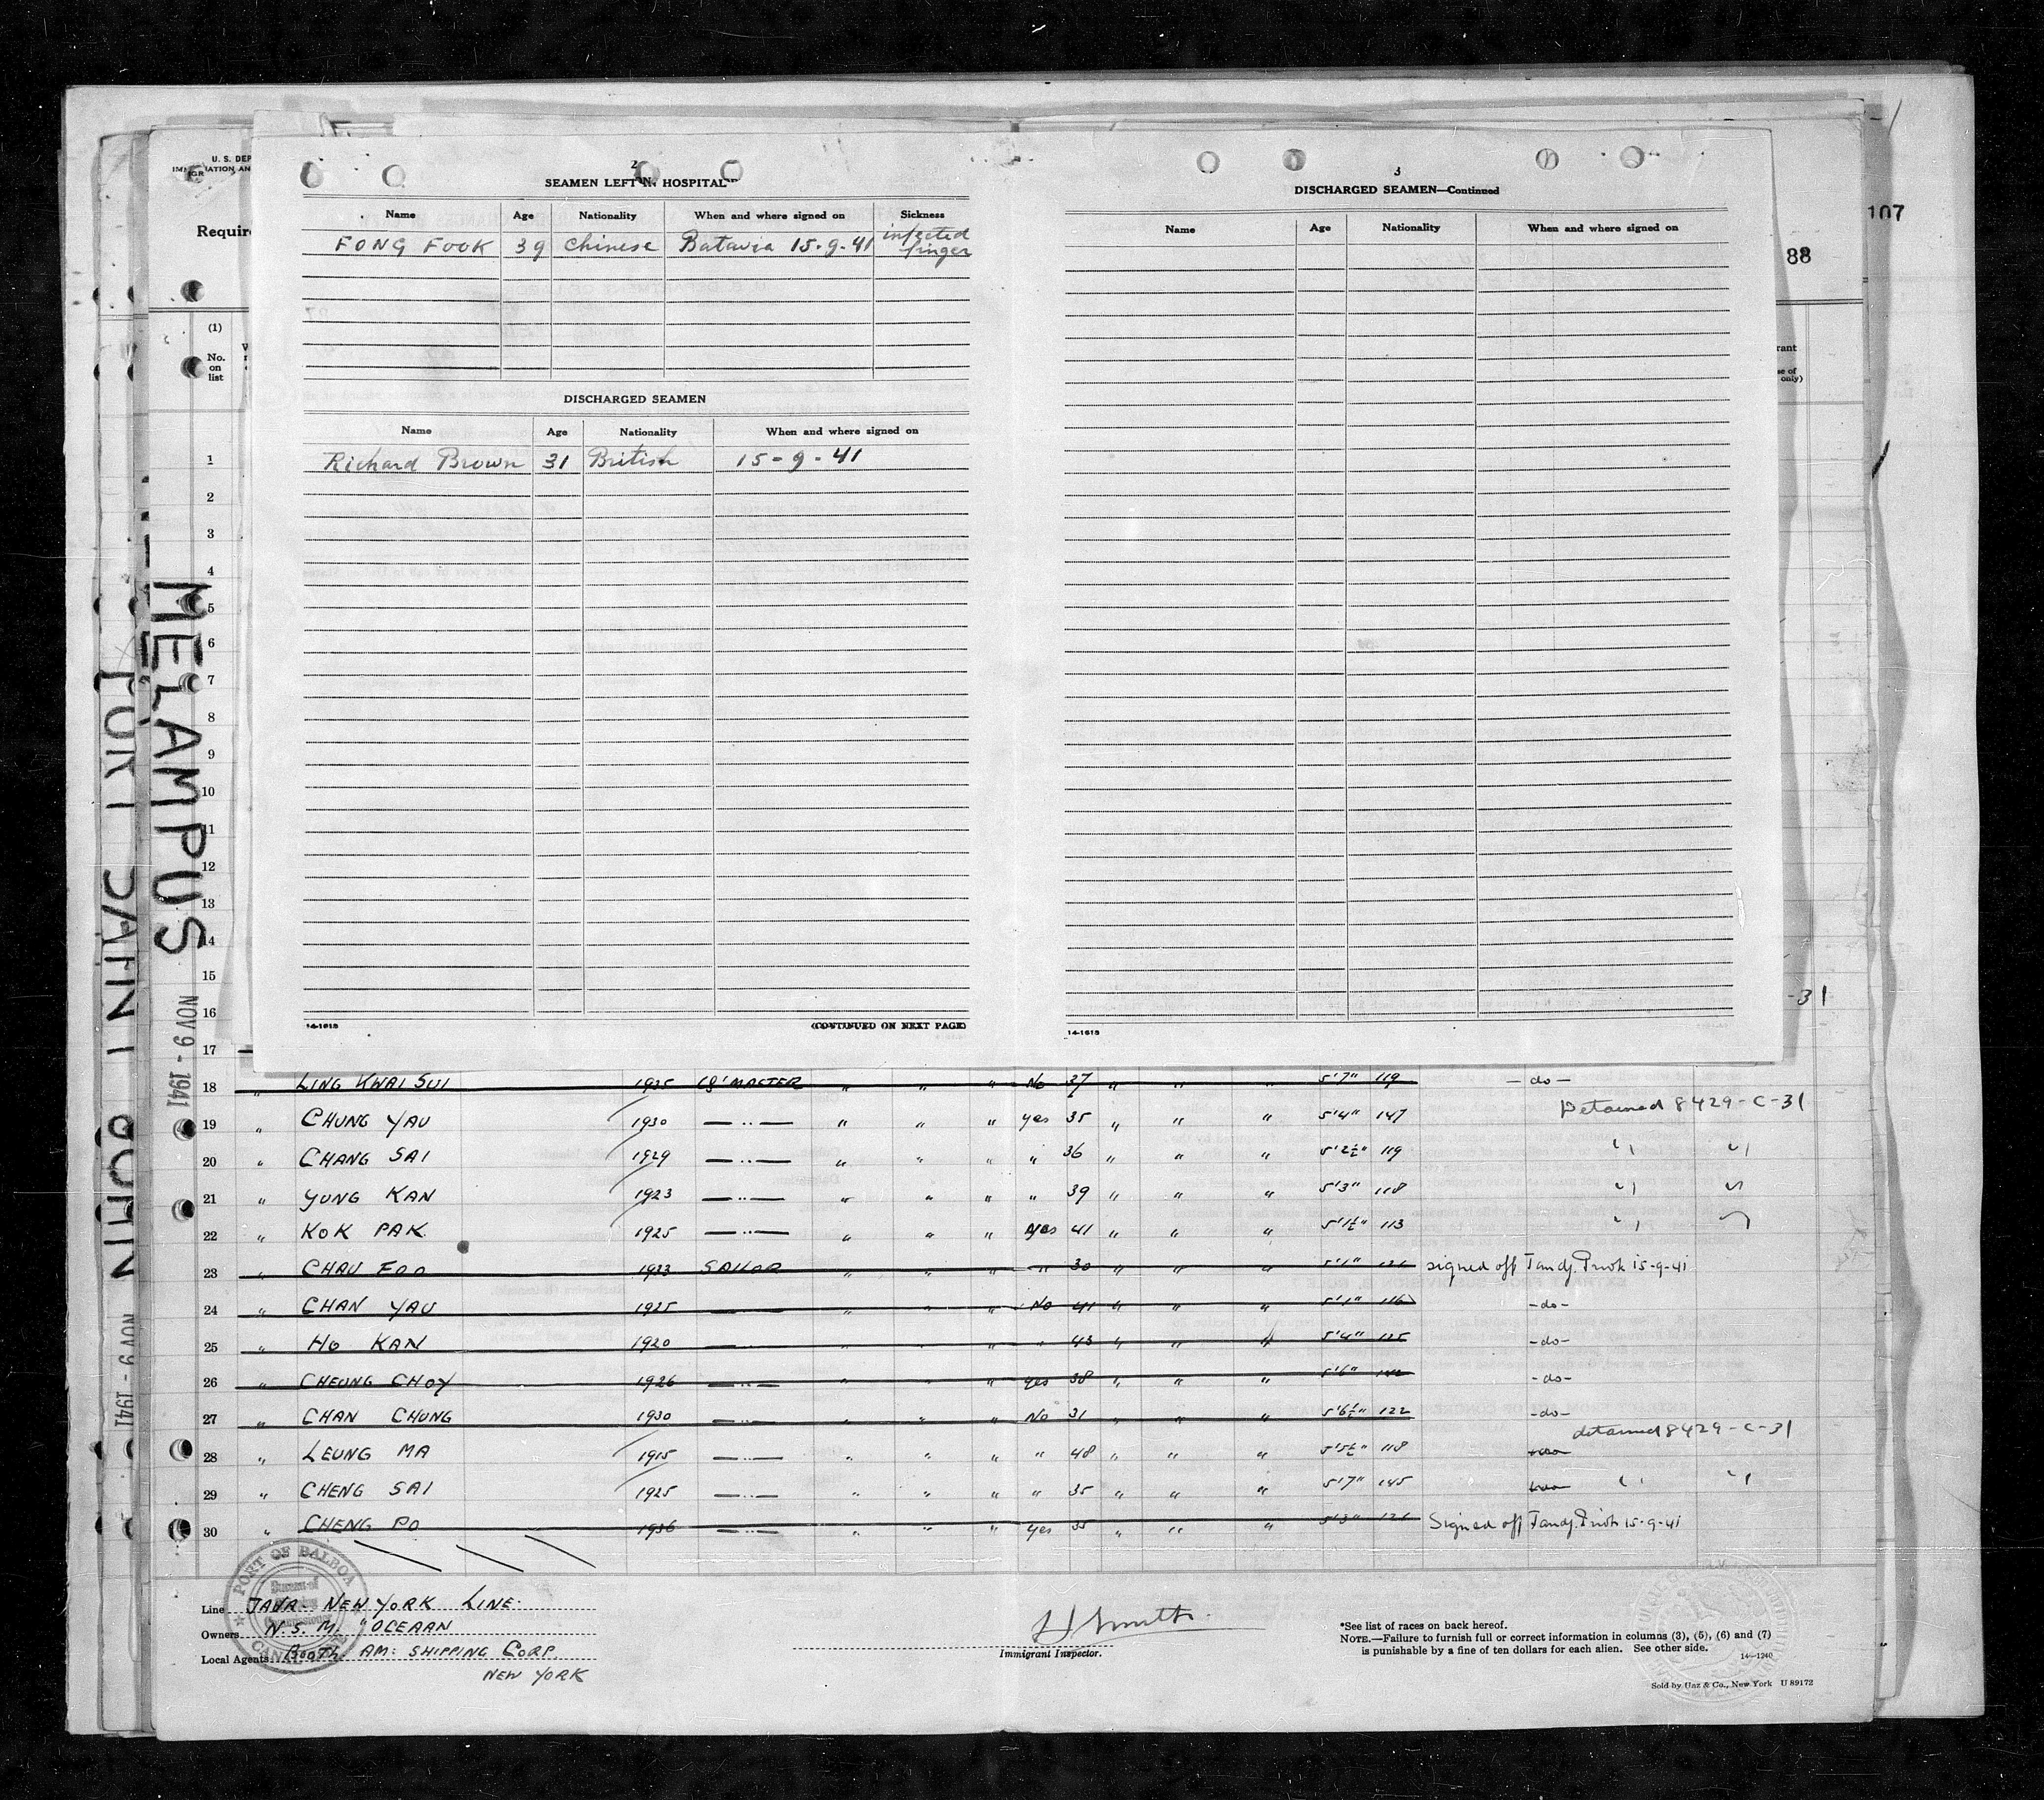 U. S. DEP
2
SEAMEN LEFT IN HOSPITAL
Name Age Nationality When and where signed on Sickness
FONG FOOK 39 Chinese Batavia 15-9-41 infected finger
DISCHARGED SEAMEN
Name Age Nationality When and where signed on
Richard Brown 31 British 15-9-41
14-1618
(CONTINUED ON NEXT PAGE)
3
DISCHARGED SEAMEN—Continued
Name Age Nationality When and where signed on
14-1618
107
88
Require
(1)
No. on list
rant
se of
only)
1
2
3
4
5
6
7
8
9
10
11
12
13
14
15
16
-31
17
MELAMPUS
NOV 9 - 1941
NOV 9 - 1941
18 " LING KWAI SUI 1935 Q'MASTER " " " No 37 " " " 5'7" 119 -do-
19 " CHUNG YAU 1930 —"— " " " yes 35 " " " 5'4" 147 Detained 8429-C-31
20 " CHANG SAI 1929 —"— " " " " 36 " " " 5'2½" 119 " "
21 " YUNG KAN 1923 —"— " " " " 39 " " " 5'3" 118 " "
22 " KOK PAK 1925 —"— " " " yes 41 " " " 5'1½" 113 " "
23 " CHAU FOO 1933 SAILOR " " " " 30 " " " 5'1" signed off Tandj. Priok 15-9-41
24 " CHAN YAU 1925 —"— " " " No 41 " " " 5'1" 116 -do-
25 " HO KAN 1920 —"— " " " " 43 " " " 5'4" 125 -do-
26 " CHEUNG CHOY 1926 —"— " " " yes 38 " " " 5'6" -do-
27 " CHAN CHUNG 1930 —"— " " " No 31 " " " 5'6½" 122 -do-
28 " LEUNG MA 1915 —"— " " " " 48 " " " 5'5½" 118 detained 8429-C-31
29 " CHENG SAI 1925 —"— " " " " 35 " " " 5'7" 145 " "
30 " CHENG PO 1936 —"— " " " yes 35 " " " 5'3" Signed off Tandj. Priok 15-9-41
PORT OF BALBOA
Line JAVA- NEW YORK LINE.
Owners N.S.M. "OCEAAN
Local Agents BOOTH AM: SHIPPING CORP.
NEW YORK
H Smith
Immigrant Inspector.
*See list of races on back hereof.
NOTE.—Failure to furnish full or correct information in columns (3), (5), (6) and (7)
is punishable by a fine of ten dollars for each alien. See other side.
14-1240
Sold by Unz & Co., New York U 89172